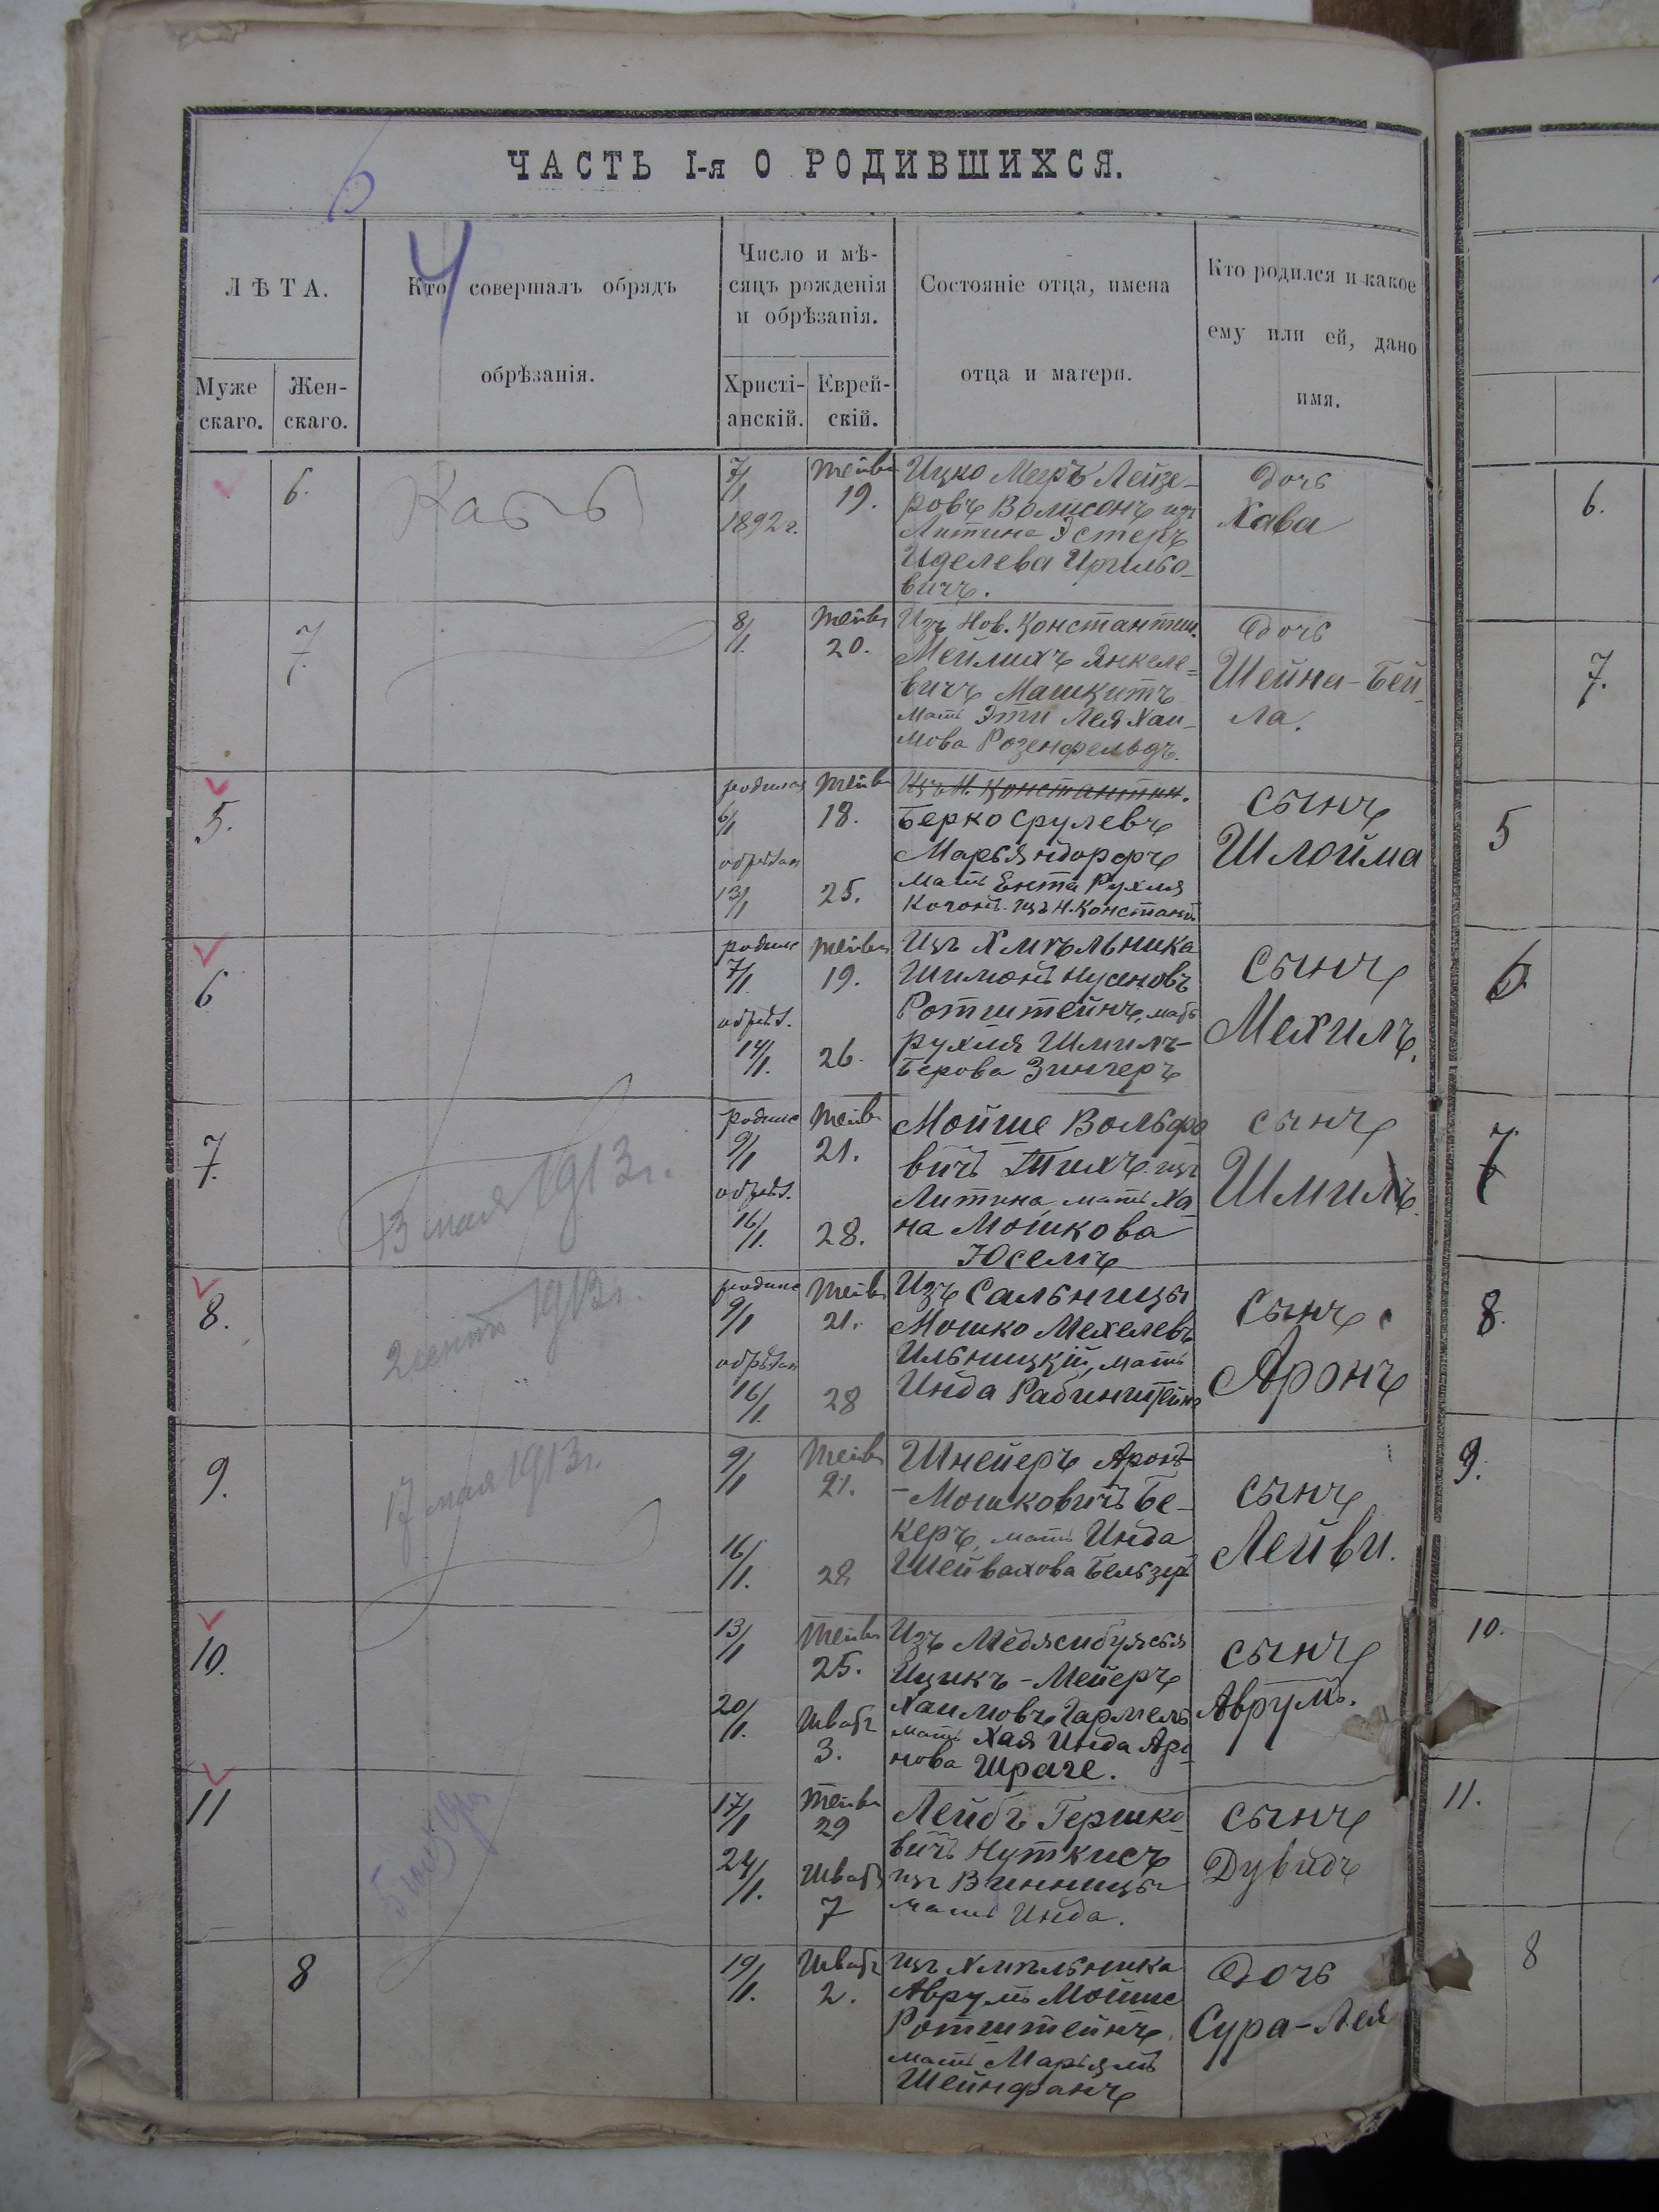 ЧАСТЬ I-я О РОДИВШИХСЯ.
6
4
ЛѢТА.
Муже
скаго.
Жен-
скаго.
Кто совершалъ обрядъ
обрѣзанія.
Число и мѣ-
сяцъ рожденія
и обрѣзанія.
Христі-
анскій.
Еврей-
скій.
Состояніе отца, имена
отца и матери.
Кто родился и какое
ему или ей, дано
имя.
6.
7/1
1892 г.
Тейв
19.
Ицко Меръ Лейзе-
ровъ изъ
Литина Эстеръ
Иделева
вичъ.
дочь
Хава
6.
7.
8/1.
Тейв
20.
Изъ Нов. Константин.
Мейлихъ Янкеле-
вичъ Машкитъ
мать Эти Лея Хаи-
мова Розенфельдъ.
дочь
Шейна-Бей-
ла.
7.
5.
родился
6/1
обрѣзан
13/1
Тейв
18.
25.
Изъ Н. Константин.
Берко Срулевъ
Марьяндорфъ
мать Ента Рухля
Когонъ. изъ Н. Констант.
сынъ
Шлойма
5
6
родилс
7/1.
обрѣз.
14/1.
Тейв
19.
26.
Изъ Хмѣльника
Шимонъ Нусеновъ
Ротштейнъ, мать
Рухля Шмилъ-
Берова Зингеръ
сынъ
Мехилъ.
6
7.
13 мая 1913 г.
родилс
9/1
обрѣз.
16/1.
Тейв
21.
28.
Мойше Вольфо
вичъ Тихъ изъ
Литина мать Ха
на Мошкова
Юселъ
сынъ
Шмилъ.
7
8.
2 сент
родилс
9/1
обрѣзан
16/1.
Тейв
21.
28
Изъ Сальницы
Мошко Мехелевъ
Ильницкій, мать
Инда Рабинштейнъ
сынъ
Аронъ
8.
9.
17 мая 1913 г.
9/1
16/1.
Тейв
21.
28
Шнейеръ Аронъ-
-Мошковичъ Бе-
керъ, мать Инда
Шейвахова
сынъ
Лейви.
9.
10.
13/1
20/1.
Тейв
25.
Швабг
3.
Изъ
Ицикъ-Мейеръ
Хаимовъ Гармель
мать Хая Инда Аро
нова Шраге.
сынъ
Аврумъ.
10.
11
17/1
24/1.
Тейв
29
Швабг
7
Лейбъ Гершко
вичъ Нуткисъ
изъ Винницы
мать Инда.
сынъ
Дувидъ
11.
8
19/1.
Швабг
2.
изъ Хмѣльника
Аврумъ Мойше
Ротштейнъ.
мать Марьямъ
Шейнфанъ
дочь
Сура-Лея
8